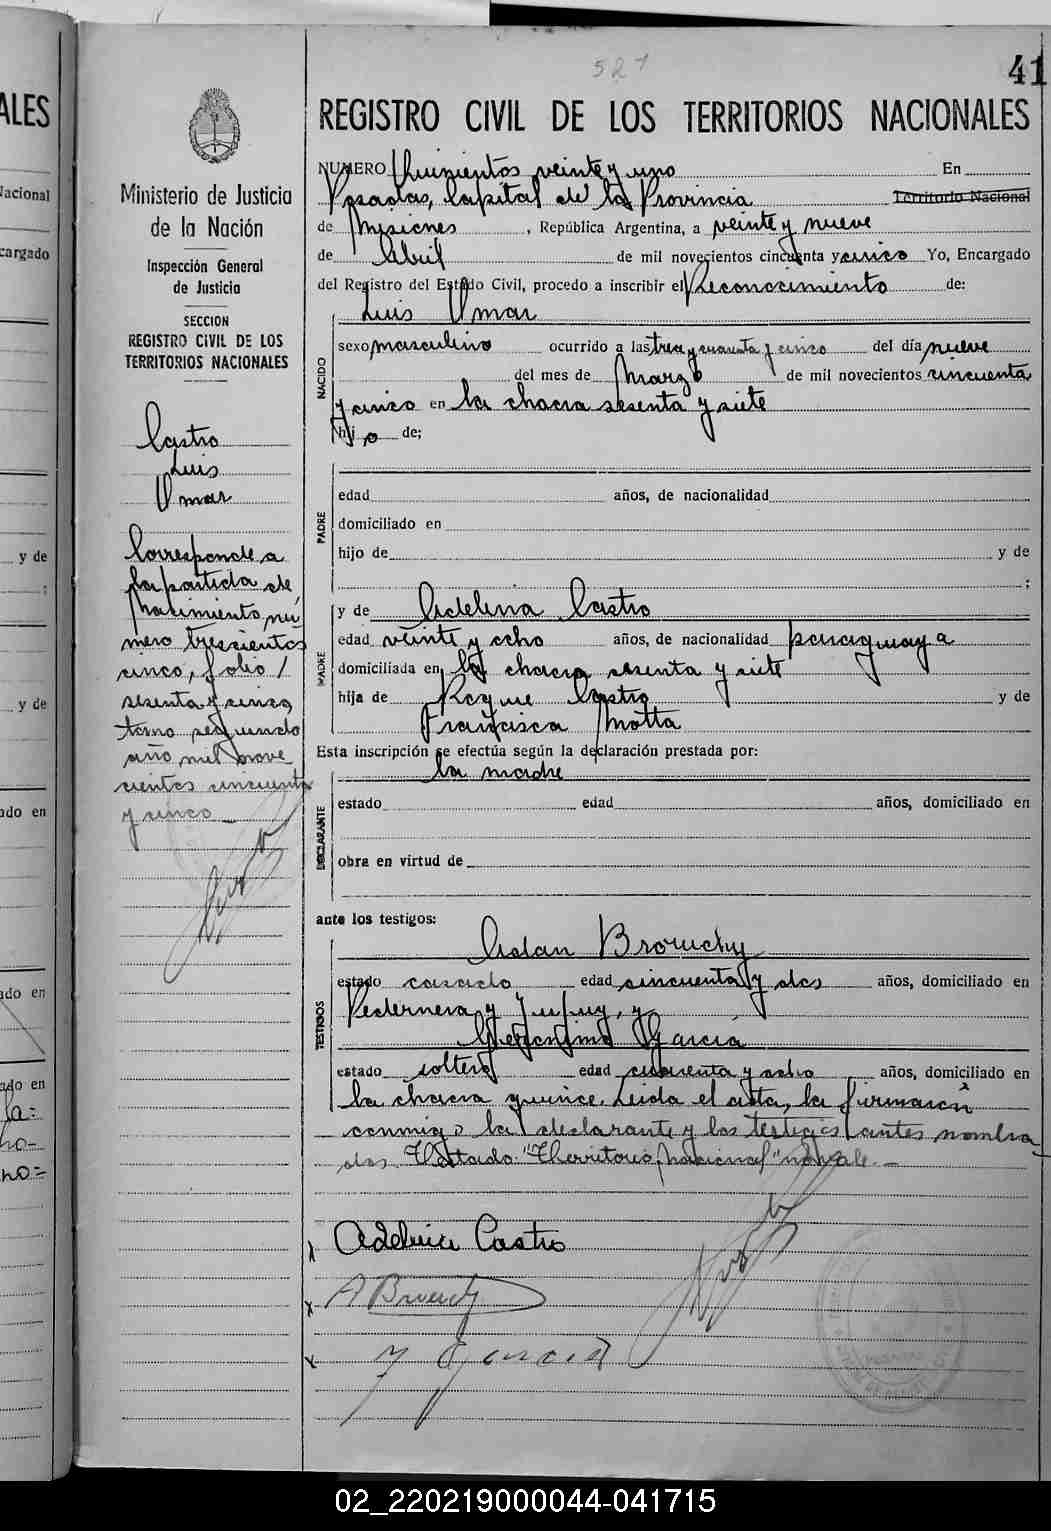 527
41
REGISTRO CIVIL DE LOS TERRITORIOS NACIONALES
NUMERO Quinientos veinte y uno En
Posadas, Capital de la Provincia Territorio Nacional
de Misiones, República Argentina, a veinte y nueve
de Abril de mil novecientos cincuenta y cinco Yo, Encargado
del Registro del Estado Civil, procedo a inscribir el Reconocimiento de:
Luis Omar
NACIDO
sexo masculino ocurrido a las tres y cuarenta y cinco del día nueve
del mes de Marzo de mil novecientos cincuenta
y cinco en la chacra sesenta y siete
hijo de;
PADRE
edad años, de nacionalidad
domiciliado en
hijo de y de
;
MADRE
y de Adelina Castro
edad veinte y ocho años, de nacionalidad paraguaya
domiciliada en la chacra sesenta y siete
hija de Roque Castro y de
Francisca Motta
Esta inscripción se efectúa según la declaración prestada por:
la madre
DECLARANTE
estado edad años, domiciliado en
obra en virtud de
ante los testigos:
TESTIGOS
Adan Browchy
estado casado edad cincuenta y dos años, domiciliado en
Pedernera y Jujuy, y
Gerónimo Garcia
estado soltero edad cuarenta y ocho años, domiciliado en
la chacra quince. Leida el acta, la firmaron
conmigo la declarante y los testigos antes nombra
dos. Testado: "Territorio nacional" no vale.-
Adelina Castro
A Browchy
Garcia
Ministerio de Justicia
de la Nación
Inspección General
de Justicia
SECCION
REGISTRO CIVIL DE LOS
TERRITORIOS NACIONALES
Castro
Luis
Omar
Corresponde a
la partida de
Nacimiento nú
mero trescientos
cinco, folio
sesenta y cinco
tomo segundo
año mil nove
cientos cincuenta
y cinco
ALES
Nacional
cargado
y de
;
y de
ado en
ado en
ado en
la:
ho-
no=
02_220219000044-041715